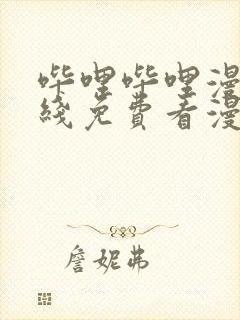 哔哩哔哩漫
线免费看漫
詹妮弗